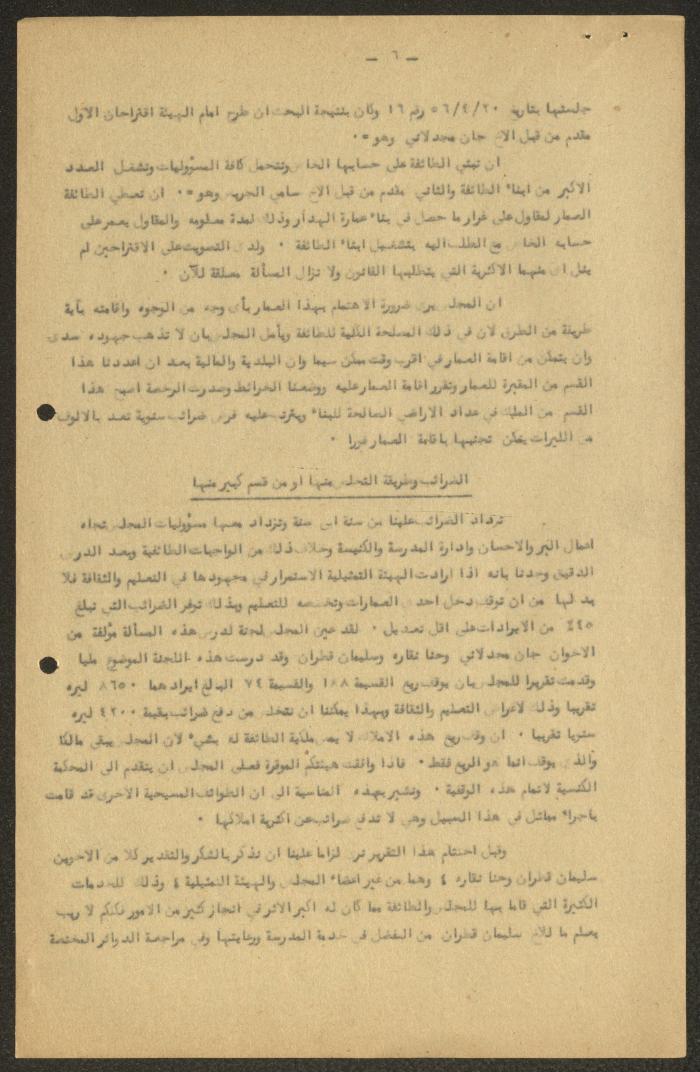 – ٦ –
جلستها بتاريخ ٥٦/٤/٢٠ رقم ١٦ وكان بنتيجة البحث ان طرح امام الهيئة اقتراحان الاول
مقدم من قبل الاخ جان مجدلاني وهو =٠
ان تبني الطائفة على حسابها الخاص وتتحمل كافة المسؤوليات وتشغل العدد
الاكبر من ابناء الطائفة والثاني مقدم من قبل الاخ سامي الجربه وهو =٠ ان تعطي الطائفة
العمار لمقاول على غرار ما حصل في بناء عمارة الهدار وذلك لمدة معلومه والمقاول يعمر على
حسابه الخاص مع الطلب اليه بتشغيل ابناء الطائفة ٠ ولدى التصويت على الاقتراحين لم
ينل اي منهما الاكثرية التي يتطلبها القانون ولا تزال المسألة معلقة للآن ٠
ان المجلس يرى ضرورة الاهتمام بهذا العمار بأى وجه من الوجوه واقامته بأية
طريقة من الطرق لان في ذلك المصلحة الكلية للطائفة ويأمل المجلس بان لا تذهب جهوده سدى
وان يتمكن من اقامة العمار في اقرب وقت ممكن سيما وان البلدية والمالية بعد ان اعددنا هذا
القسم من المقبرة للعمار وتقرر اقامة العمار عليه ووضعنا الخرائط وصدرت الرخصة اصبح هذا
القسم من الملك في عداد الاراضي الصالحة للبناء ويترتب عليه فرض ضرائب سنوية تعد بالالوف
من الليرات يمكن تجنبها باقامة العمار فورا ٠
الضرائب وطريقة التخلص منها او من قسم كبير منها
تزداد الضرائب علينا من سنة الى سنة وتزداد معها مسؤوليات المجلس تجاه
اعمال البر والاحسان وادارة المدرسة والكنيسة وخلاف ذلك من الواجبات الطائفية وبعد الدرس
الدقيق وجدنا بانه اذا ارادت الهيئة التمثيلية الاستمرار في مجهودها في التعليم والثقافة فلا
بد لها من ان توقف دخل احدى العمارات وتخصصه للتعليم وبذلك توفر الضرائب التي تبلغ
٤٥٪ من الايرادات على اقل تعديل ٠ لقد عين المجلس لجنة لدرس هذه المسألة مؤلفة من
الاخوان جان مجدلاني وحنا نقاره وسليمان قطران وقد درست هذه اللجنة الموضوع مليا
وقدمت تقريرا للمجلس بان يوقف ريع القسيمة ١٨٨ والقسيمة ٧٤ البالغ ايرادهما ٨٦٥٠ ليره
تقريبا وذلك لاغراض التعليم والثقافة وبهذا يمكننا ان نتخلص من دفع ضرائب بقيمة ٤٢٠٠ ليره
سنويا تقريبا ٠ ان وقف ريع هذه الاملاك لا يمس ملكية الطائفة له بشيء لان المجلس يبقى مالكا
والذى يوقف انما هو الريع فقط ٠ فاذا وافقت هيئتكم الموقرة فعلى المجلس ان يتقدم الى المحكمة
الكنسية لاتمام هذه الوقفية ٠ ونشير بهذه المناسبة الى ان الطوائف المسيحية الاخرى قد قامت
باجراء مماثل في هذا السبيل وهي لا تدفع ضرائب عن اكثرية املاكها ٠
وقبل اختتام هذا التقرير نرى لزاما علينا ان نذكر بالشكر والتقدير كلا من الاخوين
سليمان قطران وحنا نقاره ٤ وهما من غير اعضاء المجلس والهيئة التمثيلية ٤ وذلك للخدمات
الكثيرة التي قاما بها للمجلس والطائفة مما كان له اكبر الاثر في انجاز كثير من الامور فكلكم لا ريب
يعلم ما للاخ سليمان قطران من الفضل في خدمة المدرسة ورعايتها وفي مراجعة الدوائر المختصة